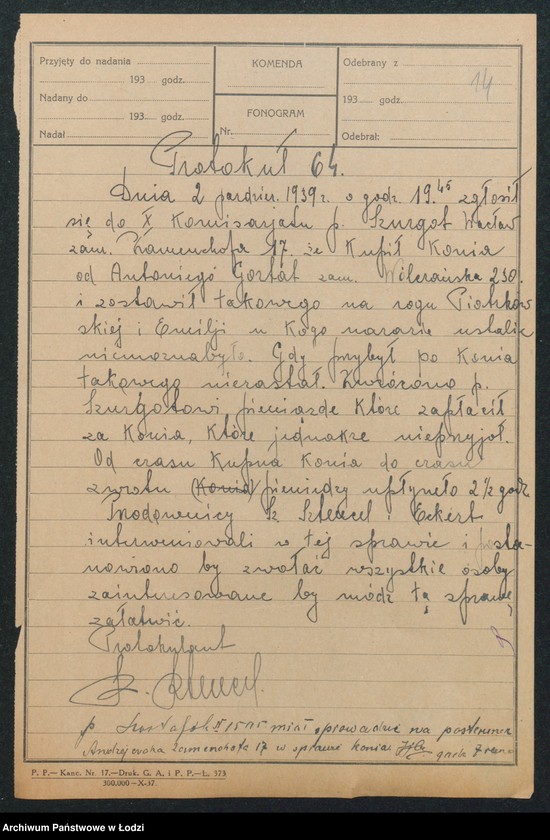 Przyjęty do nadania
193 godz.
Nadany do
193 godz.
Nadał
KOMENDA
FONOGRAM
Nr.
Odebrany z
193 godz.
Odebrał:
14
Protokuł 64.
Dnia 2 paździer. 1939 r. o godz. 19.45 zgłosił
się do X Komisarjatu p. Szurgot Wacław
zam. Zamenchofa 17. że Kupił Konia
od Antoniego Gortat zam. 230.
i zostawił takowego na rogu Piotrkow
skiej i Emilji u Kogo narazie ustalić
niemożnabyło. Gdy przybył po Konia
takowego niezastał. Zwrócono p.
Szurgotowi pieniądze Które zapłacił
za Konia, Które jednakże nieprzyjoł.
Od czasu Kupna Konia do czasu
zwrotu (Konia) pieniędzy upłynęło 2 1/2 godz.
Środowniczy i Eckert
interweniowali w tej sprawie i posta-
nowiono by zwołać wszystkie osoby
zainteresowane by módz tą sprawę
załatwić.
Protokulant
p. miał sprowadzić na posterunek
zamenchofa 17 w sprawie konia
P. P.— Kanc. Nr. 17.—Druk. G. A. i P. P.—Ł. 373
300.000—X-37.
Archiwum Państwowe w Łodzi